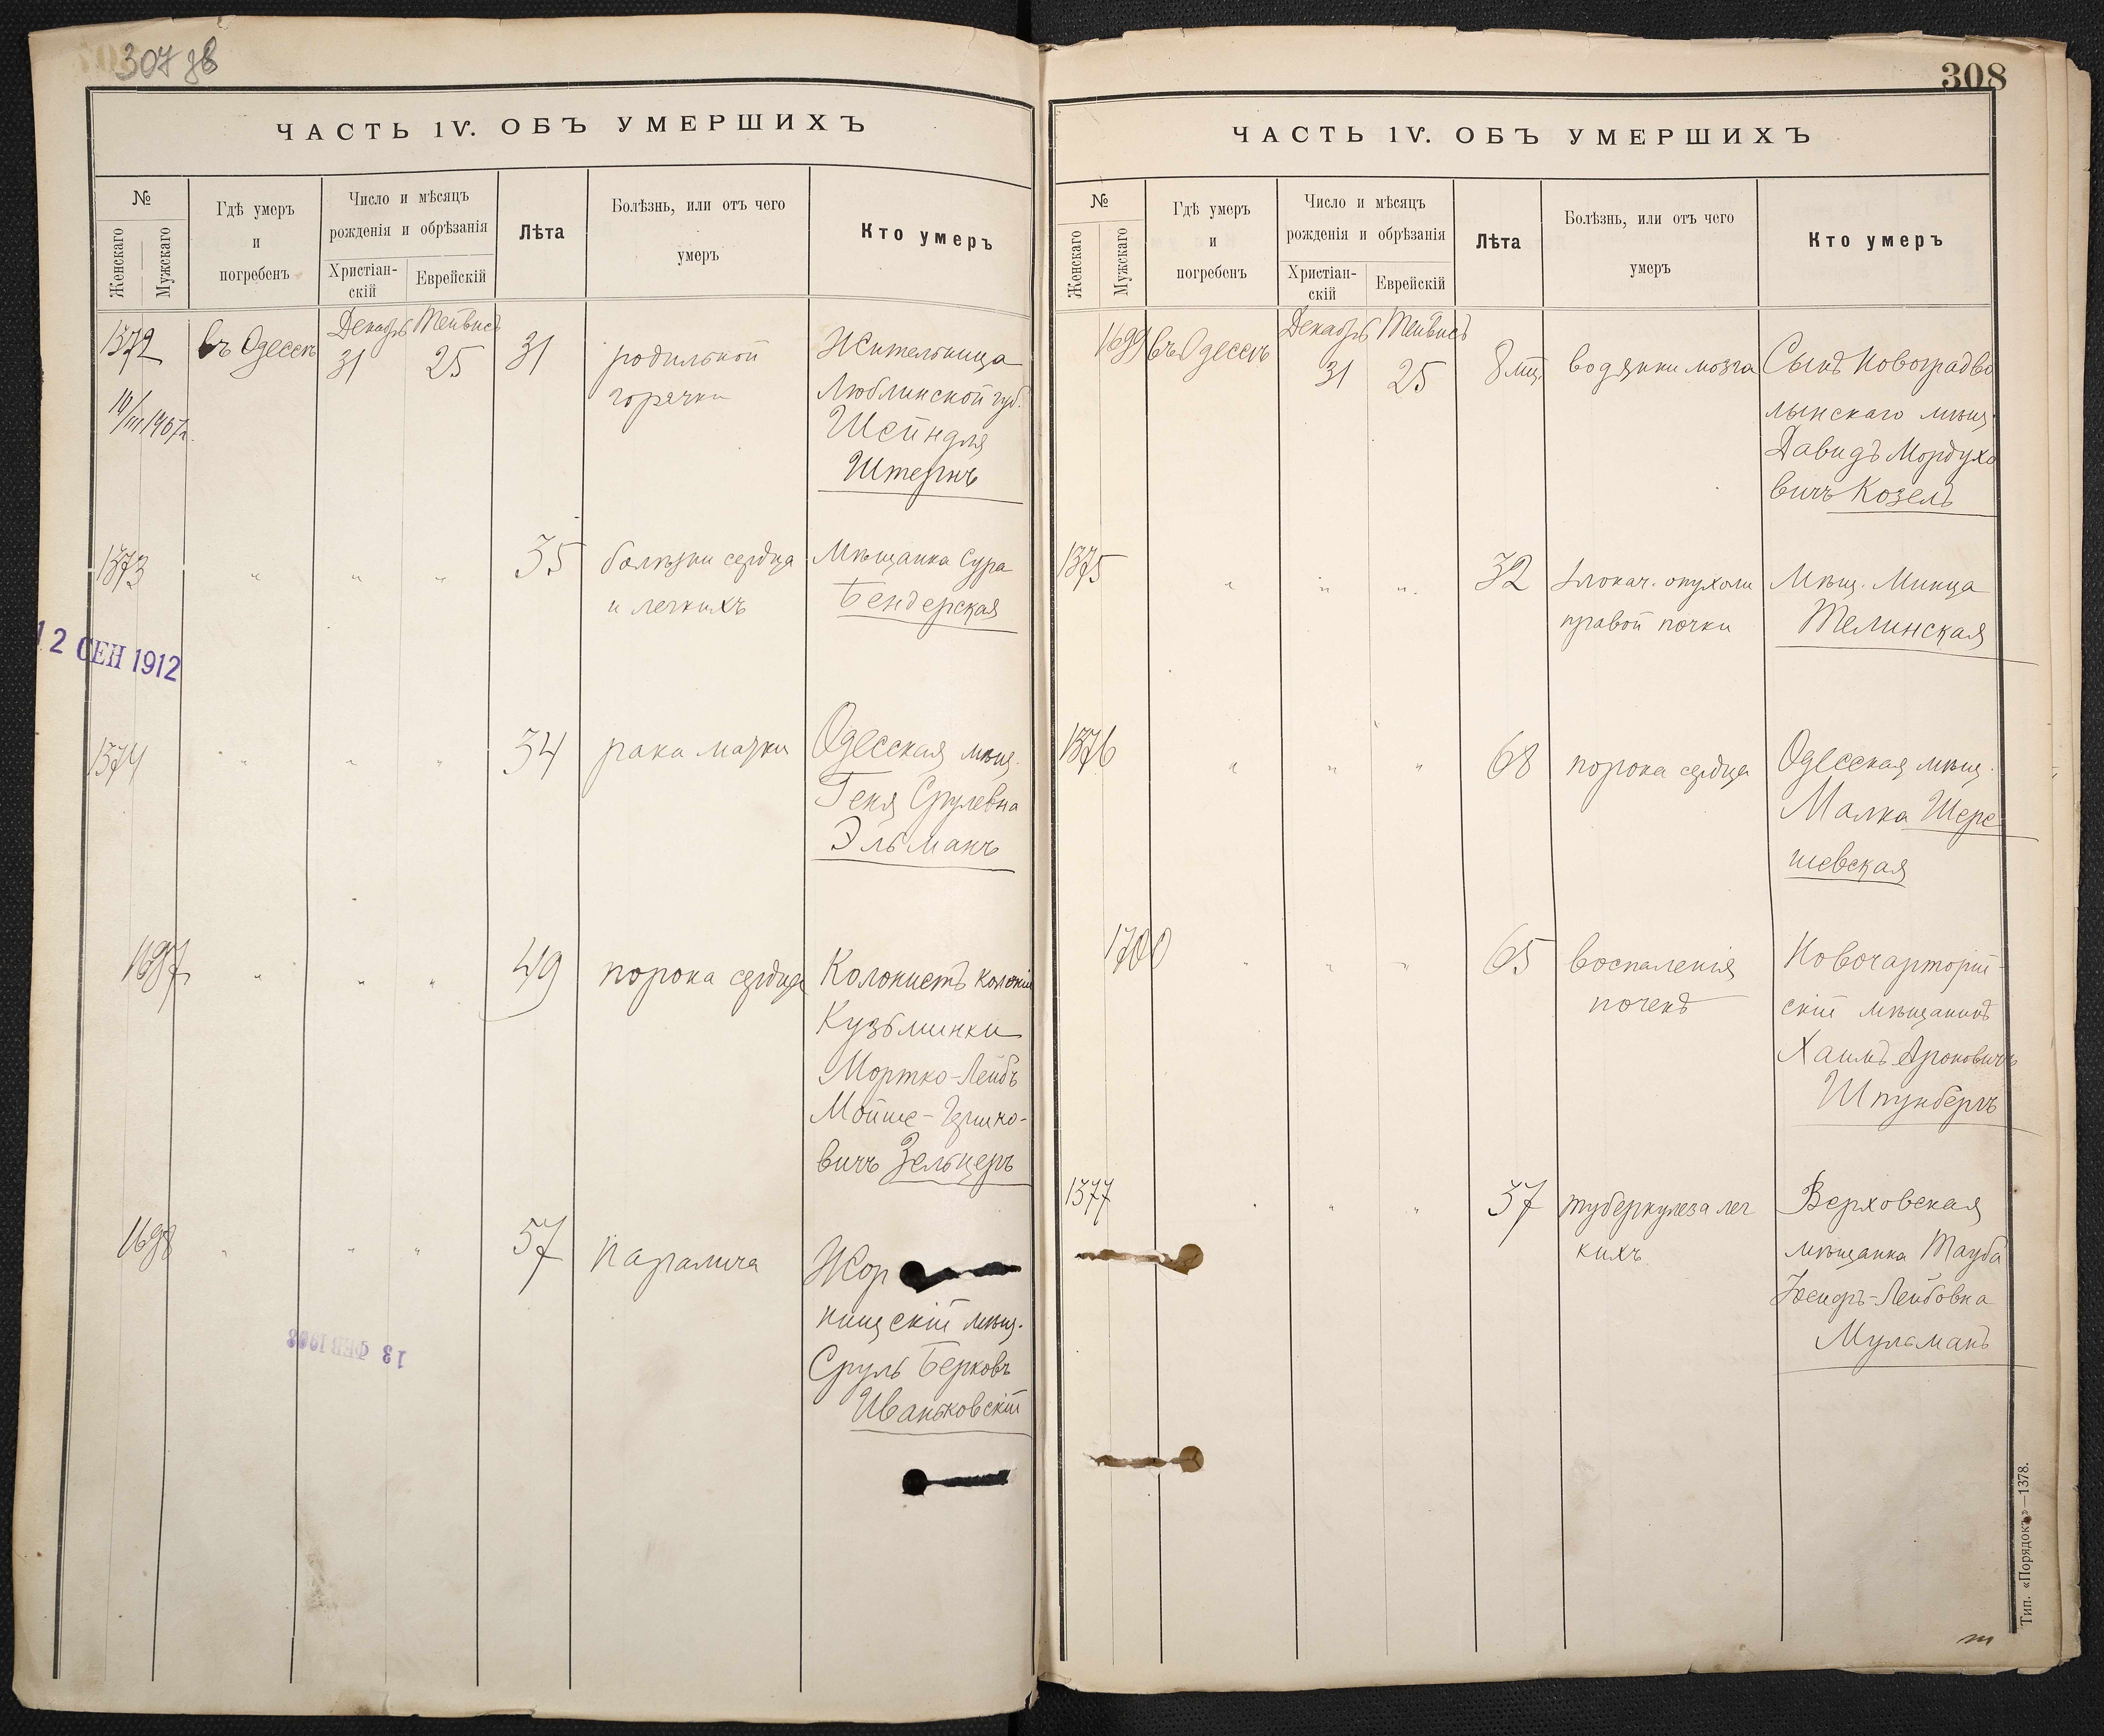 307 зв
ЧАСТЬ IV. ОБЪ УМЕРШИХЪ
№
Женскаго
Мужскаго
Гдѣ умеръ
и
погребенъ
Число и мѣсяцъ
рожденія и обрѣзанія
Христіан-
скій
Еврейскій
Лѣта
Болѣзнь, или отъ чего
умеръ
Кто умеръ
Декабрь Тейвисъ
1372 въ Одессѣ 31 25 31 родильной Жительница
горячки Люблинской губ.
Шейндля
Штернъ
1373 " " " 35 болѣзни сердца Мѣщанка Сура
и легкихъ Бендерская
12 СЕН 1912
1374 " " " 34 рака матки Одесская мѣщ.
Геня Срулевна
Эльманъ
1697 " " " 49 порока сердца Колонистъ колоніи
Кузьминки
Мортко-Лейбъ
Мойше-Гершко-
вичъ Зельцеръ
1698 " " " 57 паралича Жор
нищскій мѣщ.
Сруль Берковъ
Иваньковскій
13 ФЕВ 1908
308
ЧАСТЬ IV. ОБЪ УМЕРШИХЪ
№
Женскаго
Мужскаго
Гдѣ умеръ
и
погребенъ
Число и мѣсяцъ
рожденія и обрѣзанія
Христіан-
скій
Еврейскій
Лѣта
Болѣзнь, или отъ чего
умеръ
Кто умеръ
Декабрь Тейвисъ
1699 въ Одессѣ 31 25 8 мѣс. водянки мозга Сынъ Новоградво
лынскаго мѣщ.
Давидъ Мордухо
вичъ Козелъ
1375 " " " 32 злокач. опухоли Мѣщ. Минца
правой почки Телинская
1376 " " " 68 порока сердца Одесская мѣщ.
Малка Шере
шевская
1700 " " " 65 воспаленія Новочарторій-
почекъ скій мѣщанинъ
Хаимъ Ароновичъ
Шпунбергъ
1377 " " " 37 туберкулеза лег Верховская
кихъ мѣщанка Тауба
Іосифъ-Лейбовна
Мульманъ
Тип. «Порядокъ»—1378.